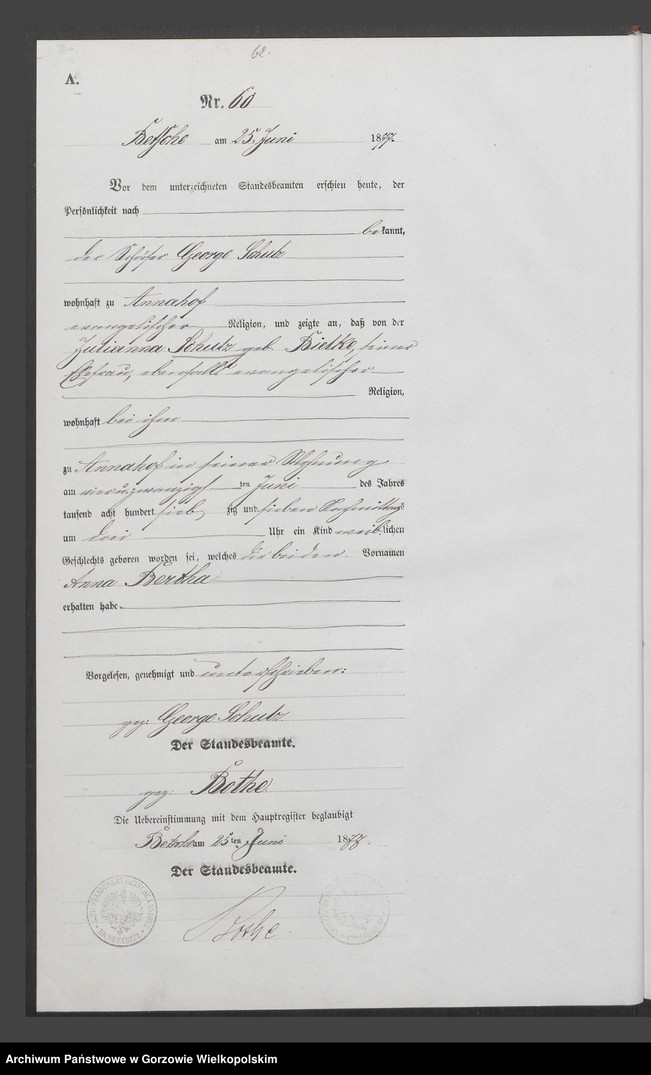 62.
A.
Nr. 60
Betsche am 25. Juni 1877.
Vor dem unterzeichneten Standesbeamten erschien heute, der
Persönlichkeit nach
bekannt,
der Schäfer George Schulz
wohnhaft zu Annahof
evangelischer Religion, und zeigte an, daß von der
Julianna Schulz geb. Bielke, seiner
Ehefrau, ebenfalls evangelischer
Religion,
wohnhaft bei ihm
zu Annahof in seiner Wohnung
am vierundzwanzigsten Juni des Jahres
tausend acht hundert siebzig und sieben Nachmittags
um drei Uhr ein Kind weiblichen
Geschlechts geboren worden sei, welches die beiden Vornamen
Anna Bertha
erhalten habe.
Vorgelesen, genehmigt und unterschrieben:
gez: George Schulz
Der Standesbeamte.
gez: Bothe
Die Uebereinstimmung mit dem Hauptregister beglaubigt
Betsche am 25ten Juni 1877.
Der Standesbeamte.
Bothe.
Archiwum Państwowe w Gorzowie Wielkopolskim